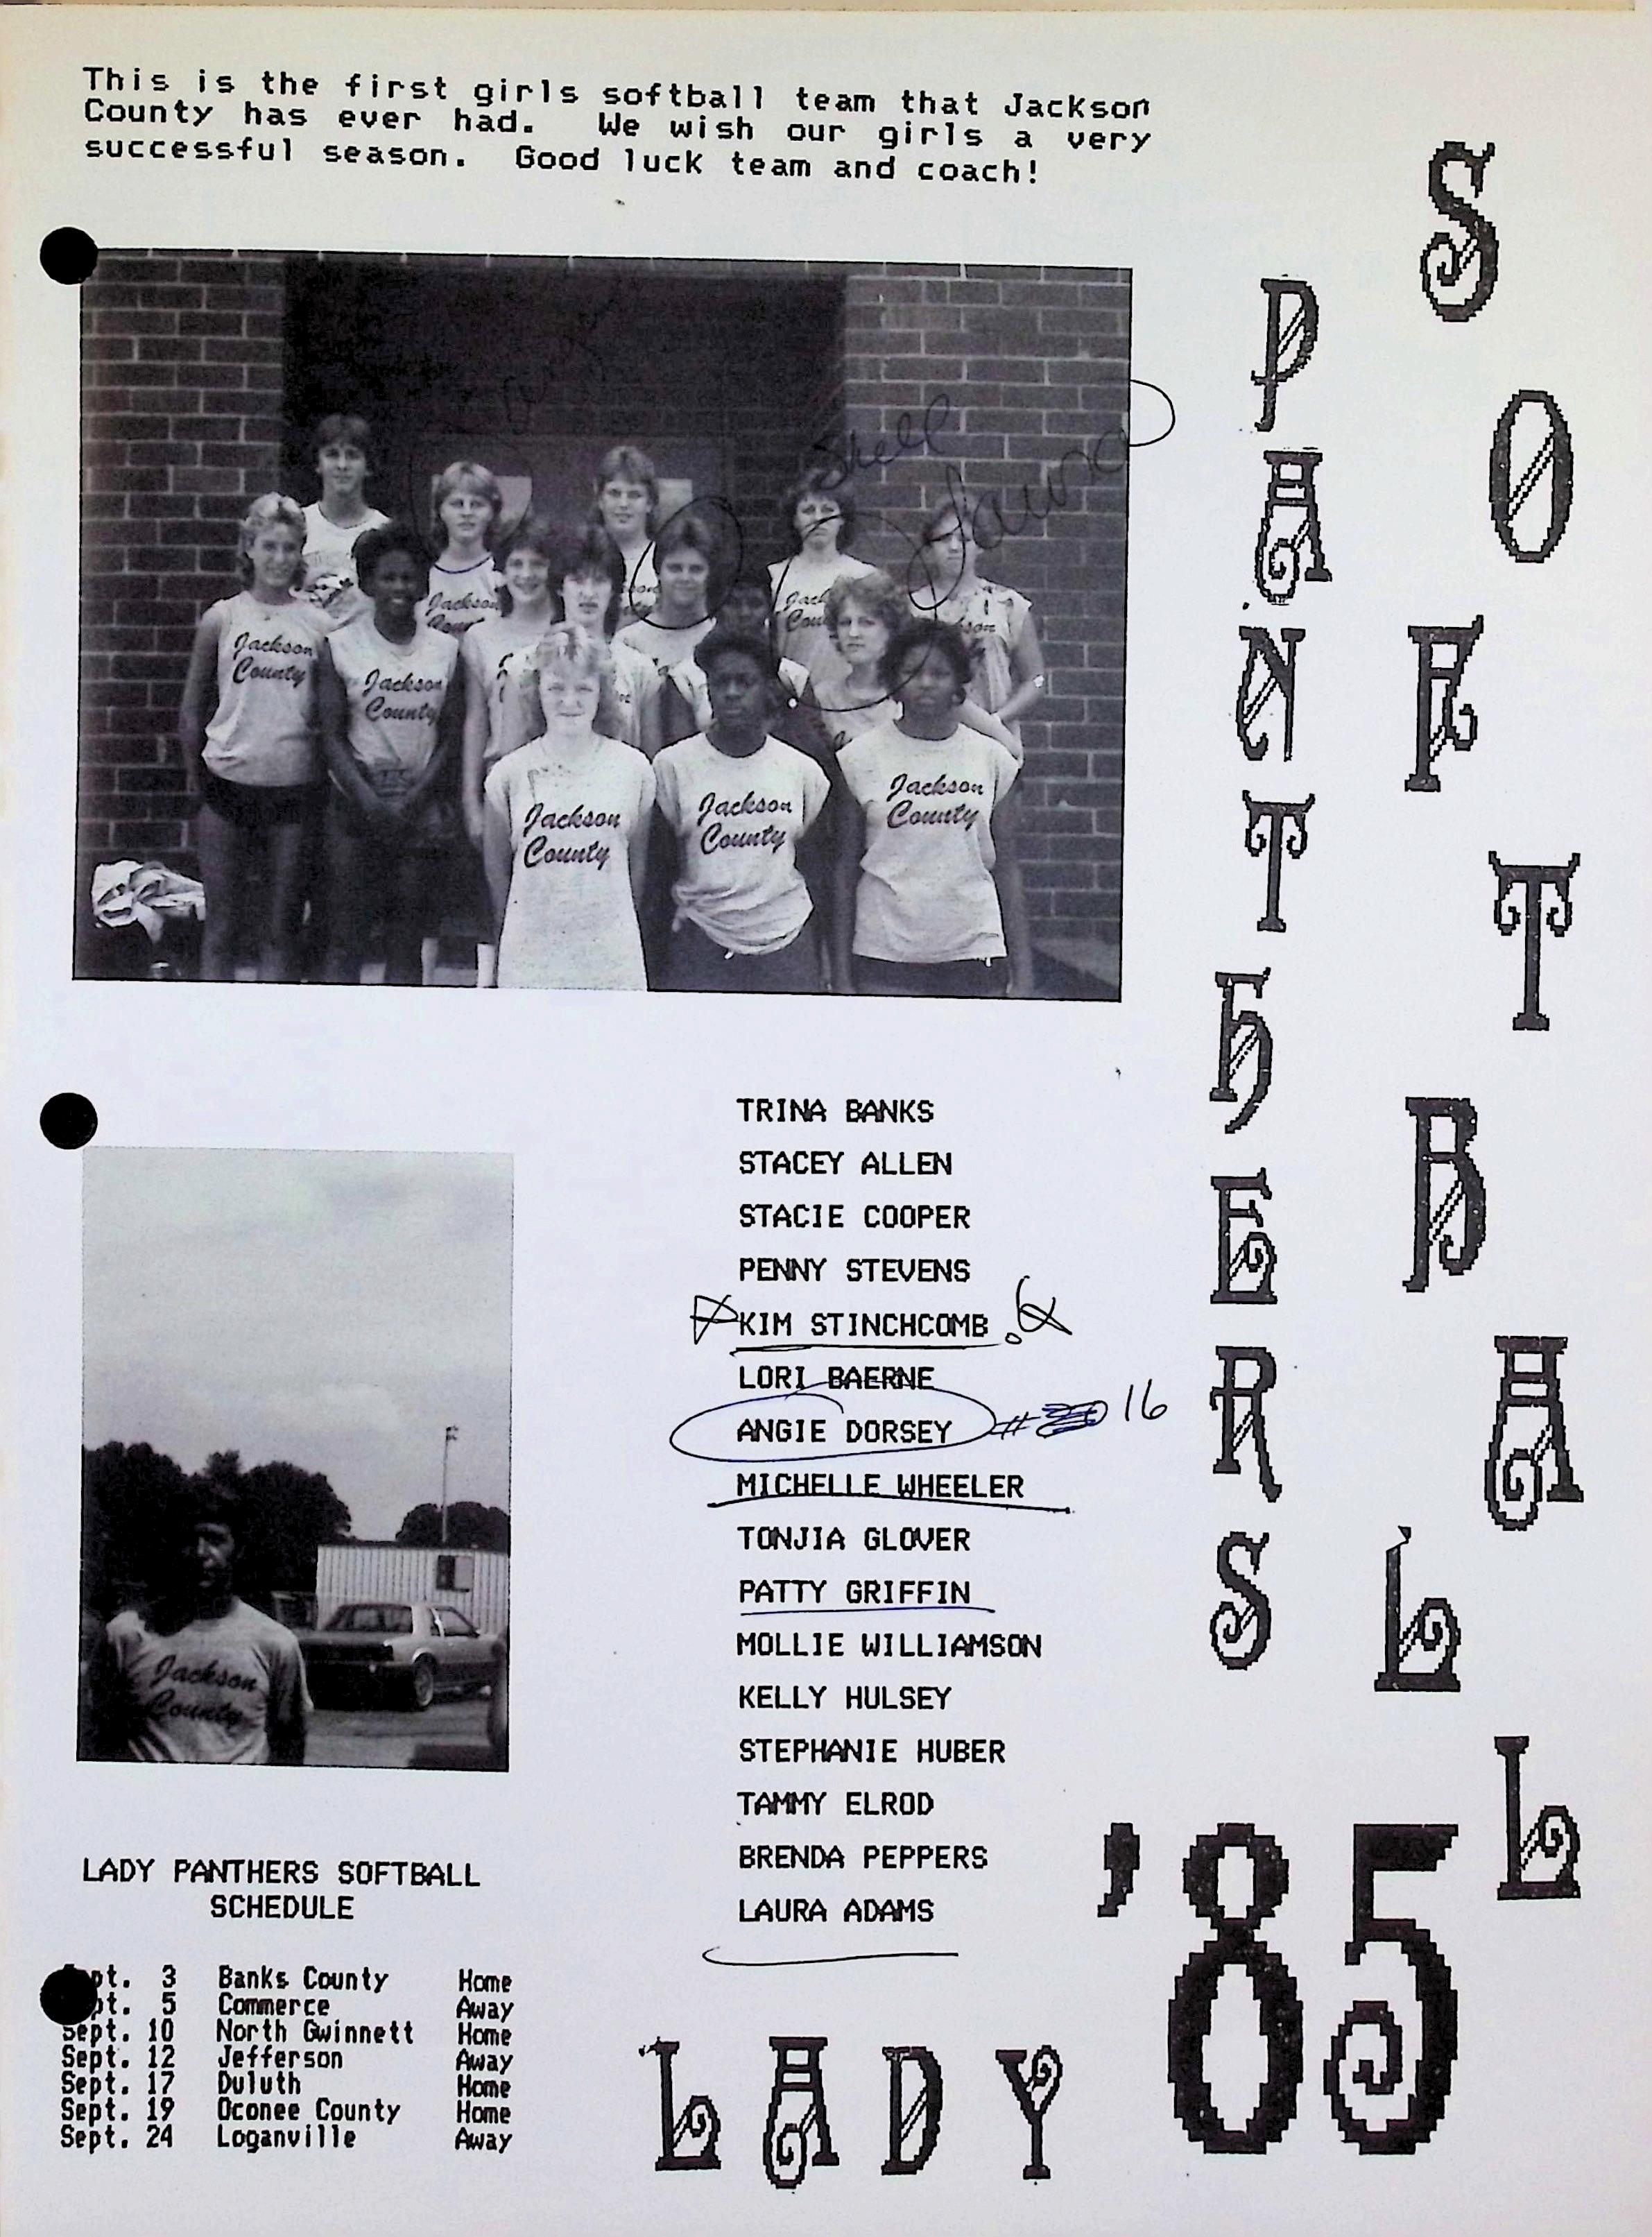 This is the first girls softball team that Jackson
County has ever had. We wish our girls a very
successful season. Good luck team and coach!
SOFTBALL
PANTHERS
Shell
Jackson
County
Jackson
County
Jackson
Jackson
County
Jackson
County
Jackson
County
TRINA BANKS
STACEY ALLEN
STACIE COOPER
PENNY STEVENS
KIM STINCHCOMB
LORI BAERNE
ANGIE DORSEY # 16
MICHELLE WHEELER
TONJIA GLOVER
PATTY GRIFFIN
MOLLIE WILLIAMSON
KELLY HULSEY
STEPHANIE HUBER
TAMMY ELROD
BRENDA PEPPERS
LAURA ADAMS
Jackson
County
LADY PANTHERS SOFTBALL
SCHEDULE
Sept. 3 Banks County Home
Sept. 5 Commerce Away
Sept. 10 North Gwinnett Home
Sept. 12 Jefferson Away
Sept. 17 Duluth Home
Sept. 19 Oconee County Home
Sept. 24 Loganville Away
LADY
'85